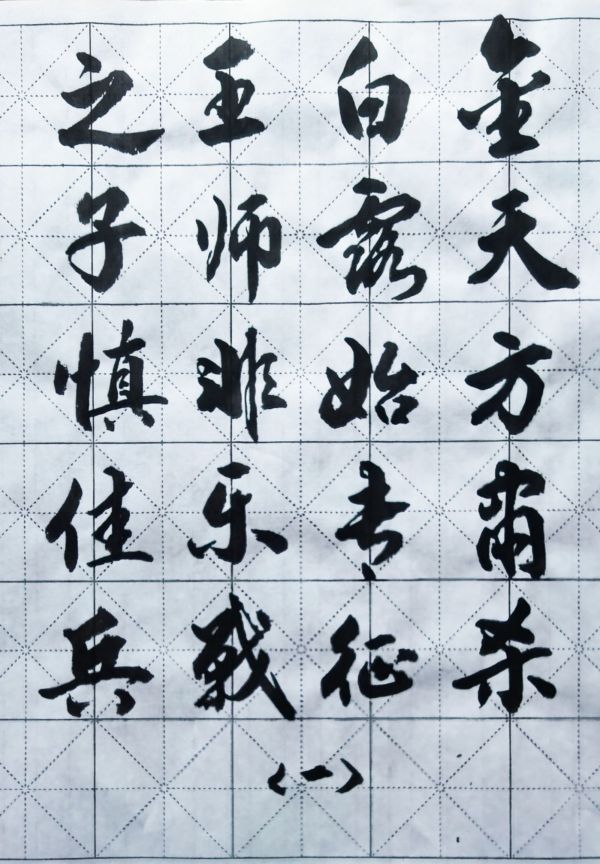 金天方肃杀
白露始专征
王师非乐戰
之子慎佳兵
（一）